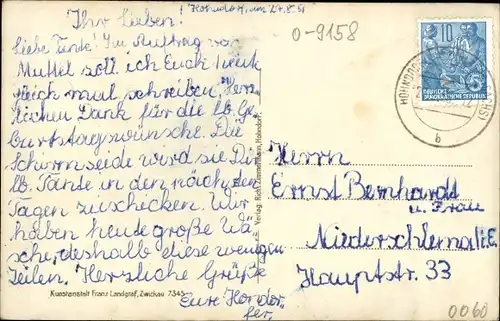 ! Hohndorf, am 24.8.5
Ihr Lieben!
Liebe Tante! Im Auftrag von
Muttel soll ich Euch heute
gleich mal schreiben. Herz
lichen Dank für die lb. Ge
burtstagswünsche. Die
Schirmseide wird sie Dir
lb. Tante in den nächsten
Tagen zuschicken. Wir
haben heute große Wä
sche, deshalb diese wenigen
Zeilen. Herzliche Grüße
Eure Hohndor-
fer.
Kunstanstalt Franz Landgraf, Zwickau 7345
Verlag: Rich. Zimmermann, Hohndorf
0-9158
10
DEUTSCHE
DEMOKRATISCHE REPUBLIK
HOHNDORF
b
Herrn
Ernst Bernhardt
u. Frau
Niederschlema i. E.
Hauptstr. 33
0060